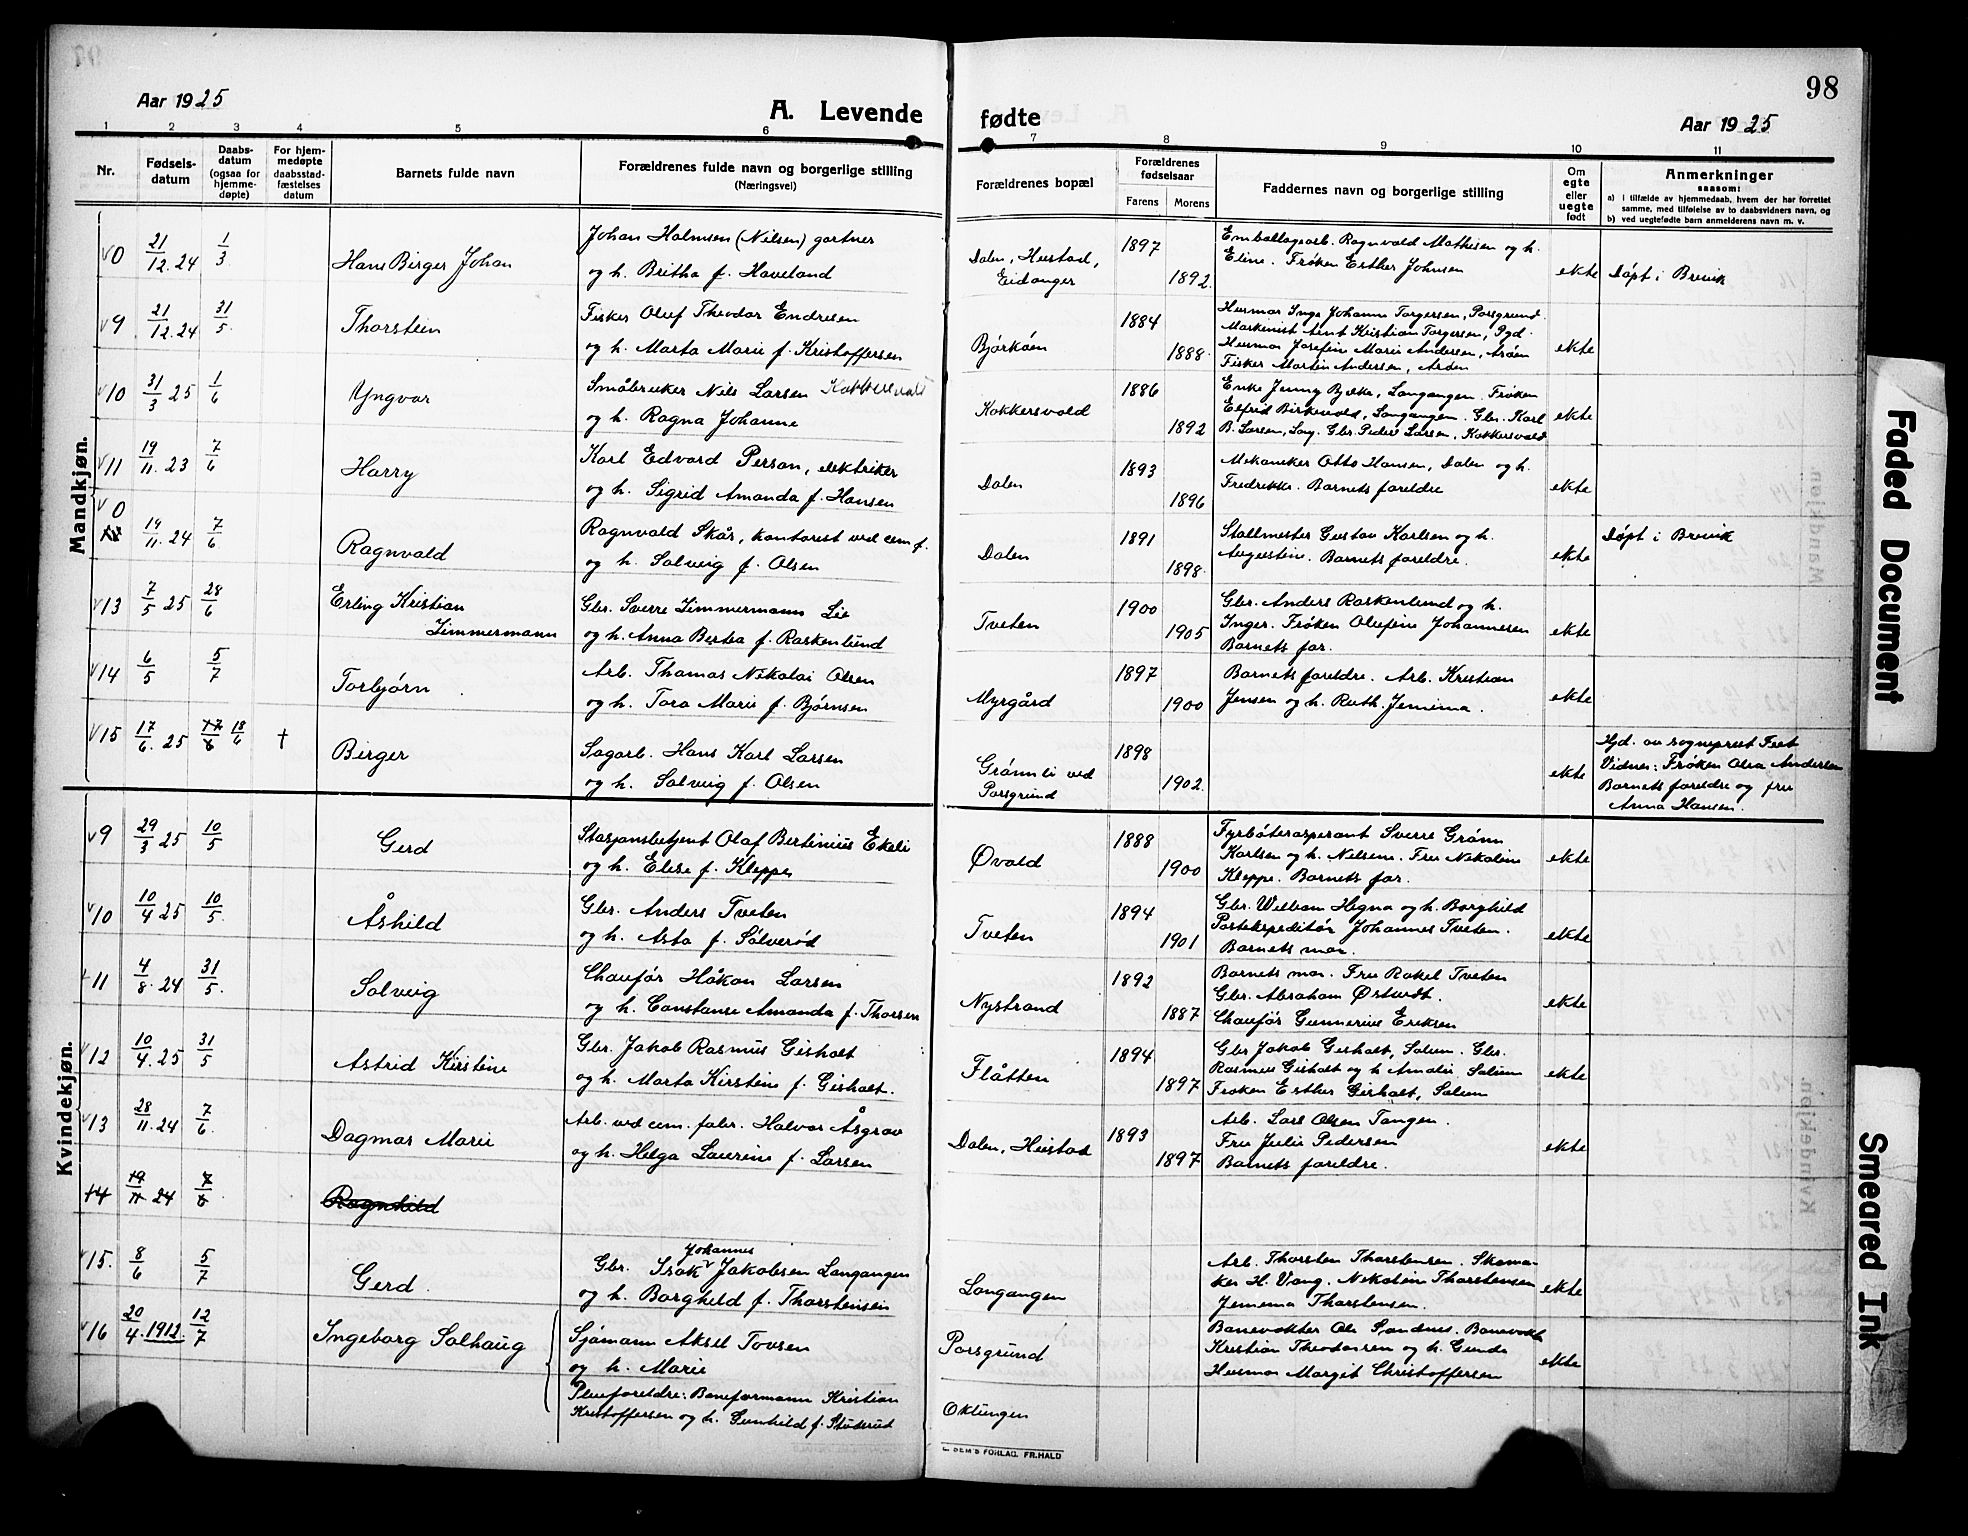 98
Aar 1925
A. Levende
fødte
Aar 1925
1 2 3 4 5 6 7 8 9 10 11
Nr.
Fødsels-
datum
Daabs-
datum
(ogsaa for
hjemme-
døpte)
For hjem-
medøpte
daabsstad-
fæstelses
datum
Barnets fulde navn
Forældrenes fulde navn og borgerlige stilling
(Næringsvei)
Forældrenes bopæl
Forældrenes
fødselsaar
Farens Morens
Faddernes navn og borgerlige stilling
Om
egte
eller
uegte
født
Anmerkninger
saasom:
a) i tilfælde av hjemmedaab, hvem der har forrettet
samme, med tilføielse av to daabsvidners navn, og
b) ved uegtefødte barn anmelderens navn m. v.
Mandkjøn.
v0 21/12.24 1/3 Hans Birger Johan
Johan Halmsen (Nilsen) gartner
og h. Britha f. Haveland
Dalen, Heistad,
Eidanger
1897
1892.
Emballagearb. Ragnvald Mathisen og h.
Eline. Frøken Esther Johnsen
ekte
Døpt i Brevik
v9 21/12.24 31/5. Thorstein
Fisker Oluf Theodor Endresen
og h. Marta Marie f. Kristoffersen
Bjørkøen
1884
1888.
Husmor Inga Johanne Torgersen, Porsgrund.
Maskinist Arnt Kristian Torgersen, Pgd.
Husmor Josefine Marie Andersen, Arøen
Fisker Martin Andersen, Arøen
ekte
v10 31/3 25 1/6 Yngvar
Småbruker Nils Larsen Kokkersvold
og h. Ragna Johanne
Kokkersvold
1886
1892
Enke Jenny Bjelke, Langangen. Frøken
Elfrid Birkevold, Langangen. Gbr. Karl
B. Larsen, Lang. Gbr. Peder Larsen, Kokkersvold
ekte
v11 19/11 23 7/6 Harry
Karl Edvard Person, elektriker
og h. Sigrid Amanda f. Hansen
Dalen
1893
1896
Mekaniker Otto Hansen, Dalen og h.
Fredrikke. Barnets foreldre
ekte
v0
12 19/11.24 7/6 Ragnvald
Ragnvald Skår, kontorist ved cem.f.
og h. Solveig f. Olsen
Dalen
1891
1898.
Stallmester Gustav Karlsen og h.
Augustine. Barnets foreldre.
ekte
Døpt i Brevik
v13 7/5 25 28/6 Erling Kristian
Zimmermann
Gbr. Sverre Zimmermann Lie
og h. Anna Bertea f. Raskenlund
Tveten
1900
1905
Gbr. Anders Raskenlund og h.
Inger. Frøken Olufine Johannesen
Barnets far.
ekte
v14 6/5 5/7 Torbjørn
Arb. Thomas Nikolai Olsen
og h. Tora Marie f. Bjørnsen
Myrgård
1897
1900
Barnets foreldre. Arb. Kristian
Jensen og h. Ruth. Jemima.
ekte
v15 17/6.25 17/6 18/6 † Birger
Sagarb. Hans Karl Larsen
og h. Solveig f. Olsen
Grønnli ved
Porsgrund
1898
1902.
ekte
Hjd. av sogneprest Feet
Vidner: Frøken Olea Andersen
Barnets foreldre og fru
Anna Hansen.
Kvindekjøn.
v9 29/3 25 10/5 Gerd
Stasjonsbetjent Olaf Bertinius Ekeli
og h. Elise f. Kleppe
Øvald
1888
1900
Fyrbøteraspirant Sverre Grønn
Karlsen og h. Nelsine. Fru Nikoline
Kleppe. Barnets far.
ekte
v10 10/4 25 10/5. Åshild
Gbr. Anders Tveten
og h. Asta f. Sølverød
Tveten
1894
1901
Gbr. William Hegna og h. Borghild
Postekspeditør Johannes Tveten.
Barnets mor.
ekte
11 4/8.24 31/5. Solveig
Chaufør Håkon Larsen
og h. Constanse Amanda f. Thorsen
Nystrand
1892
1887
Barnets mor. Fru Rakel Tveten
Gbr. Abraham Østvedt.
Chaufør Gunnerius Eriksen
ekte
v12 10/4.25 31/5 Astrid Kirstine
Gbr. Jakob Rasmus Gisholt
og h. Marta Kirstine f. Gisholt.
Flåtten
1894
1897
Gbr Jakob Gisholt, Solum. Gbr.
Rasmus Gisholt og h Amalie, Solum
Frøken Esther Gisholt, Solum
ekte
v13 28/11.24 7/6. Dagmar Marie
Arb. ved cem. fabr. Halvor Åsgrav
og h. Helga Laurine f. Larsen
Dalen, Heistad
1893
1897
Arb. Lars Olsen Tangen.
Fru Julie Pedersen
Barnets foreldre.
ekte
14 19/11 24 7/6 Ragnhild
v15. 8/6 5/7 Gerd.
Johannes
Gbr. Isak v Jakobsen Langangen
og h. Borghild f. Thorstensen
Langangen
Arb. Thorsten Thorstensen. Skoma-
ker H. Vang. Nikoline Thorstensen
Jemima Thorstensen.
ekte
v16 20/4.1912. 12/7 Ingeborg Solhaug
Sjømann Aksel Tovsen
og h. Marie
Pleieforeldre: Baneformann Kristian
Kristoffersen og h. Gunhild f. Stulerud
Porsgrund
Oklungen
Banevokter Ole Sandnes. Banevokt
Kristian Theodorsen og h. Gunda
Husmor Margit Christoffersen
ekte
E. SEM'S FORLAG. FR.HALD
Faded Document
Smeared Ink